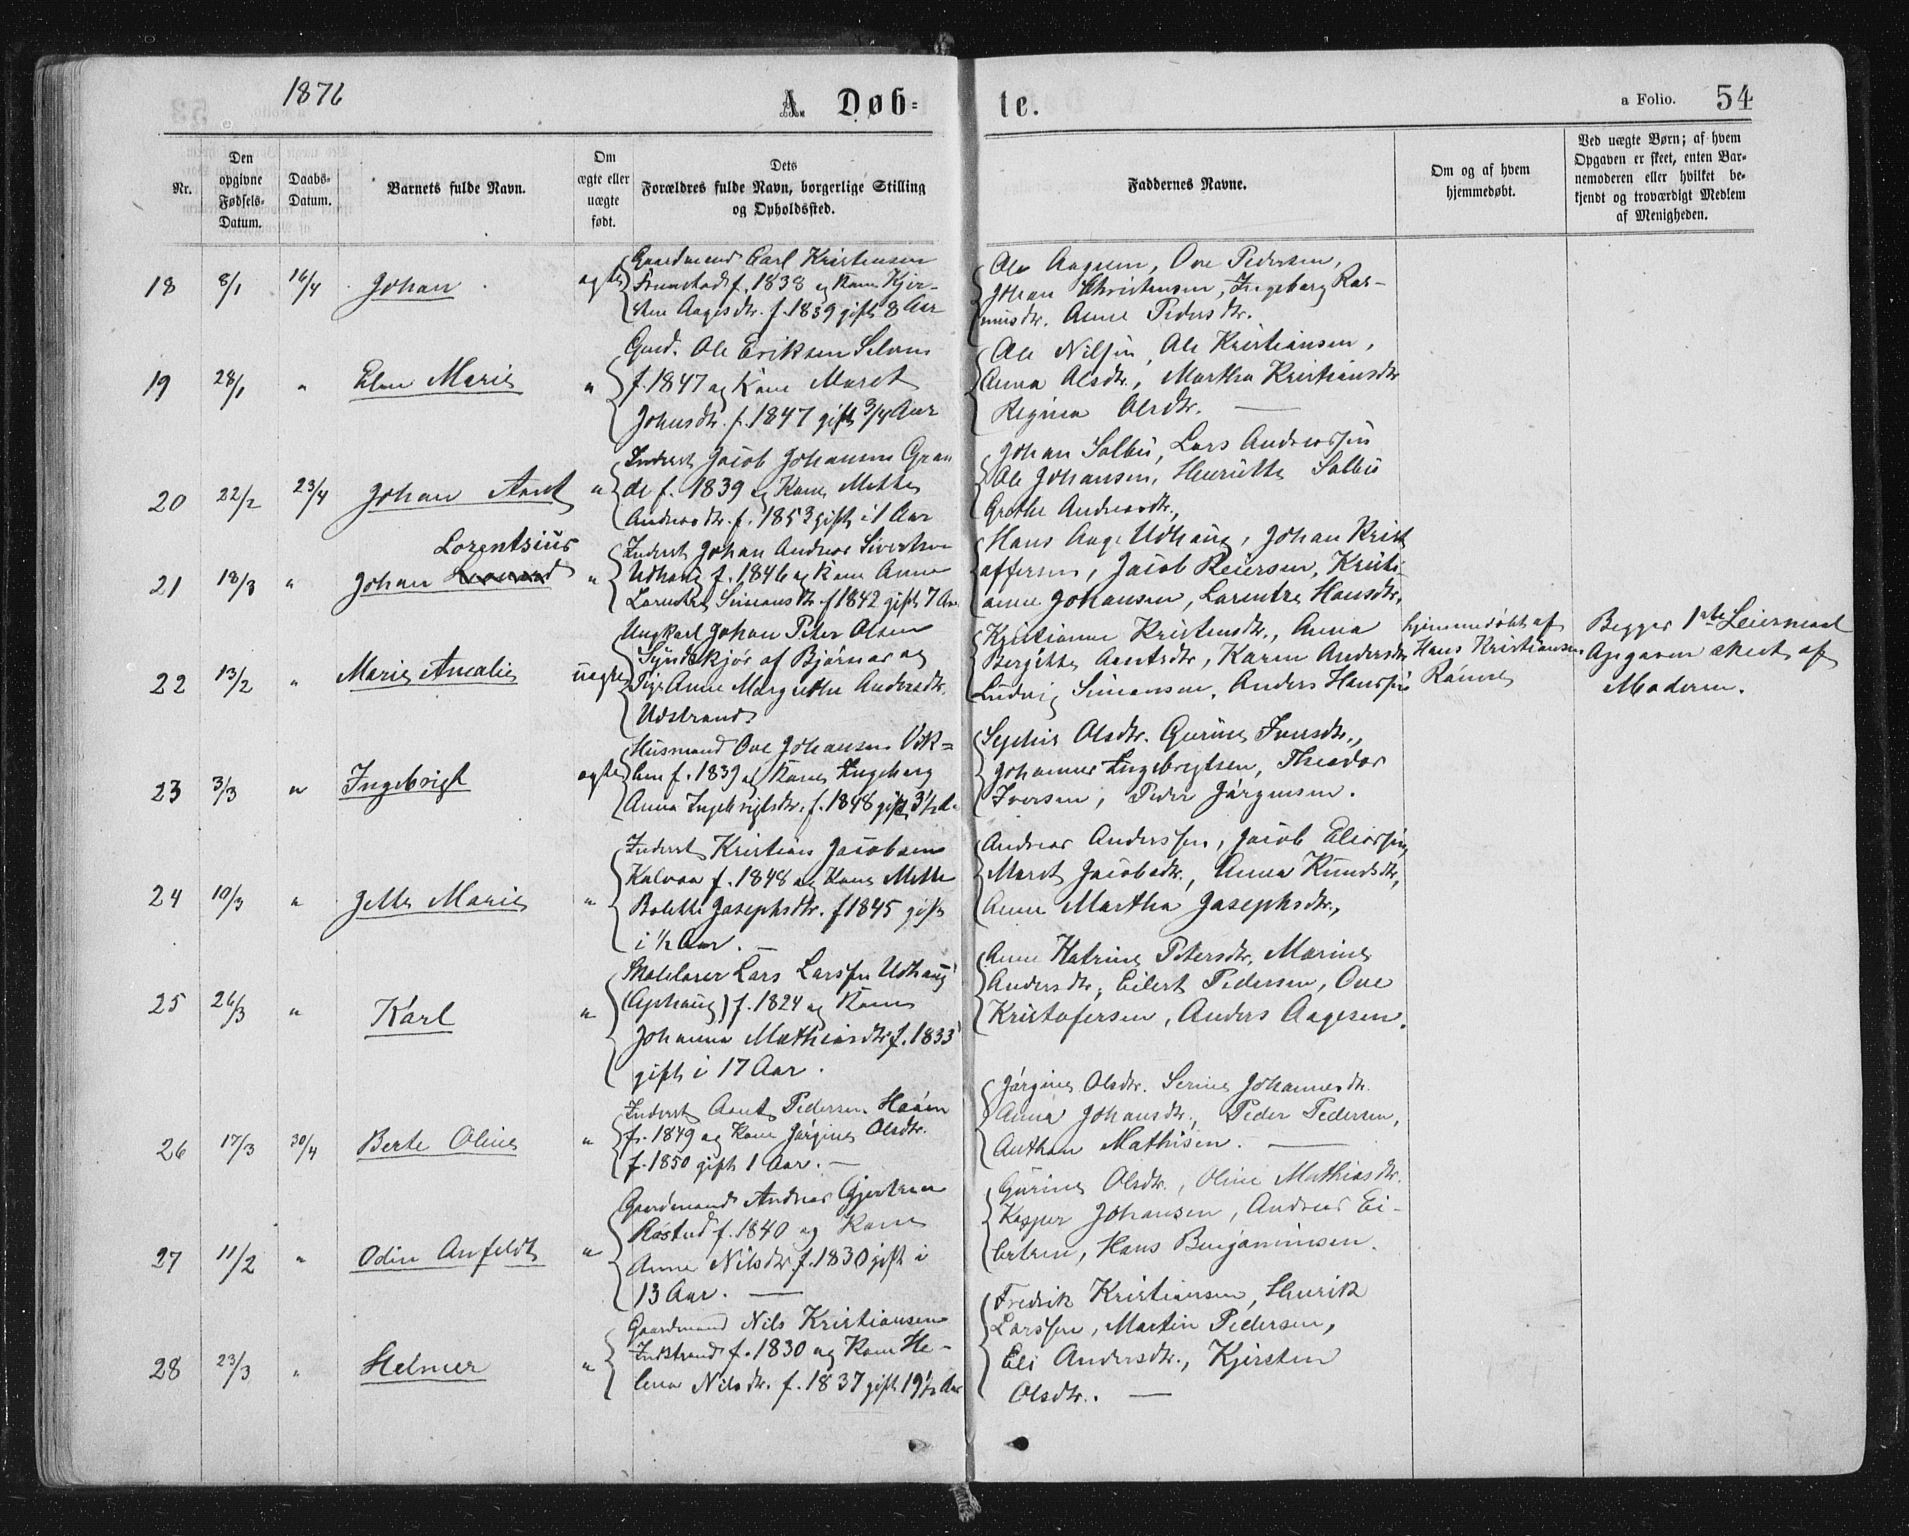 1876
A. Døb=
te.
a Folio. 54
Nr.
Den opgivne Fødsels-Datum.
Daabs-Datum.
Barnets fulde Navn.
Om ægte eller uægte født.
Dets Forældres fulde Navn, borgerlige Stilling og Opholdssted.
Faddernes Navne.
Om og af hvem hjemmedøbt.
Ved uægte Børn; af hvem Opgaven er skeet, enten Barnemoderen eller hvilket bekjendt og troværdigt Medlem af Menigheden.
18 8/1 16/4 Johan ægte
Gaardmand Carl Kristensen
f. 1838 og Kone Kjer-
sten Aagesdtr. f. 1839 gift 8 Aar
Ole Aagesen, Ove Pedersen,
Johan Christensen, Ingeborg Ras-
musdtr. Anne Pedersdtr.
19 28/1 " Elen Marie "
Gmd. Ole Eriksen Selvnes
f. 1847 og Kone Maret
Johnsdtr. f. 1847 gift 3/4 Aar
Ole Nilsen, Ole Kristiansen,
Anna Olsdtr., Martha Kristiansdtr
Regina Olsdtr.
20 22/2 23/4 Johan Arnt "
Inderst Jacob Johansen Gran
de f. 1839 og Kone Mette
Andreasdtr. f. 1853 gift i 1 Aar
Johan Solbu, Lars Andreassen
Ole Johansen, Henriette Solbu
Grethe Andreasdtr.,
Lorentsius
21 18/3 " Johan "
Inderst Johan Andreas Sivertsen
Udhaug f. 1846 og Kone Anne
Larentse Simonsdtr f 1842 gift 7 Aar
Hans Aage Udhaug, Johan Krist
offersen, Jacob Reiersen, Kristi-
anne Johansen, Larentse Hansdtr.
22 13/2 " Marie Amalie uægte
Ungkarl Johan Peter Olsen
Syndskjør af Bjørnør og
Pige Anne Margrethe Andersdtr.
Udstrand
Kristianne Kristensdtr., Anna
Bergitte Arntsdtr, Karen Andersdtr
Ludvig Simonsen, Anders Hanssen
hjemmedøbt af
Hans Kristiansen
Rønne
Begges 1ste Leiermaal
Opgaven skeet af
Moderen.
23 3/3 " Ingebrigt ægte
Husmand Ove Johansen Vik-
len f. 1839 og Kone Ingeborg
Anna Ingebrigtsdtr. f. 1848 gift 3 1/2 A.
Sophie Olsdtr. Gurine Iversdtr.,
Johannes Ingebrigtsen, Theodor
Iversen, Peder Jørgensen.
24 10/3 " Jette Marie "
Inderst Kristian Jacobsen
Kalvaa f. 1848 og Kone Mette
Bolette Josephsdtr. f 1845 gift
i 1/2 Aar.
Andreas Anderssen, Jacob Eliassen,
Maret Jacobsdtr., Anna Knudsdtr,
Anne Martha Josephsdtr.,
25 26/3 " Karl "
Skolelærer Lars Larssen Udhaug
(Ophaug) f. 1824 og Kone
Johanna Mathiasdtr f. 1833
gift i 17 Aar.
Anne Katrine Petersdtr, Marine
Andersdtr, Eilert Pedersen, Ove
Kristofersen, Anders Aagesen.
26 17/3 30/4 Berte Oline "
Inderst Arnt Pedersen
f. 1849 og Kone Jørgine Olsdtr.
f. 1850 gift 1 Aar.
Jørgine Olsdtr. Serine Johannesdtr.
Anna Johansdtr., Peder Pedersen,
Anthon Mathisen.
27 11/2 " Odin Anfeldt "
Gaardmand Andreas Gjertsen
Røstad f. 1840 og Kone
Anne Nilsdtr. f. 1830 gift i
13 Aar.
Gurine Olsdtr., Oline Mathiasdtr.
Kasper Johansen, Andreas Ei-
lertsen, Hans Benjaminsen.
28 23/3 " Helmer "
Gaardmand Nils Kristiansen
Indstrand f. 1830 og Kone He-
lena Nilsdtr. f. 1837 gift 19 1/2 Aar
Fredrik Kristiansen, Henrik
Larssen, Martin Pedersen,
Eli Andersdtr., Kjersten
Olsdtr.